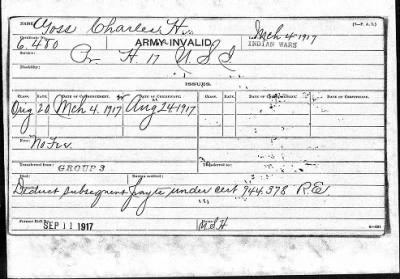 NAME Goss Charles H.
Certificate No. 6,480 ARMY INVALID Law Mch 4 1917 INDIAN WARS
Service: Pr. H 17 U.S.I
Disability:
ISSUES.
CLASS. RATE. DATE OF COMMENCEMENT. DATE OF CERTIFICATE. CLASS. RATE. DATE OF COMMENCEMENT. DATE OF CERTIFICATE.
Orig 20 Mch 4, 1917 Aug 24-1917
No Frs.
Transferred from
GROUP 3
Died
Deduct subsequent payts under cert 944,578 R.E
Former Roll No.
SEP 11 1917